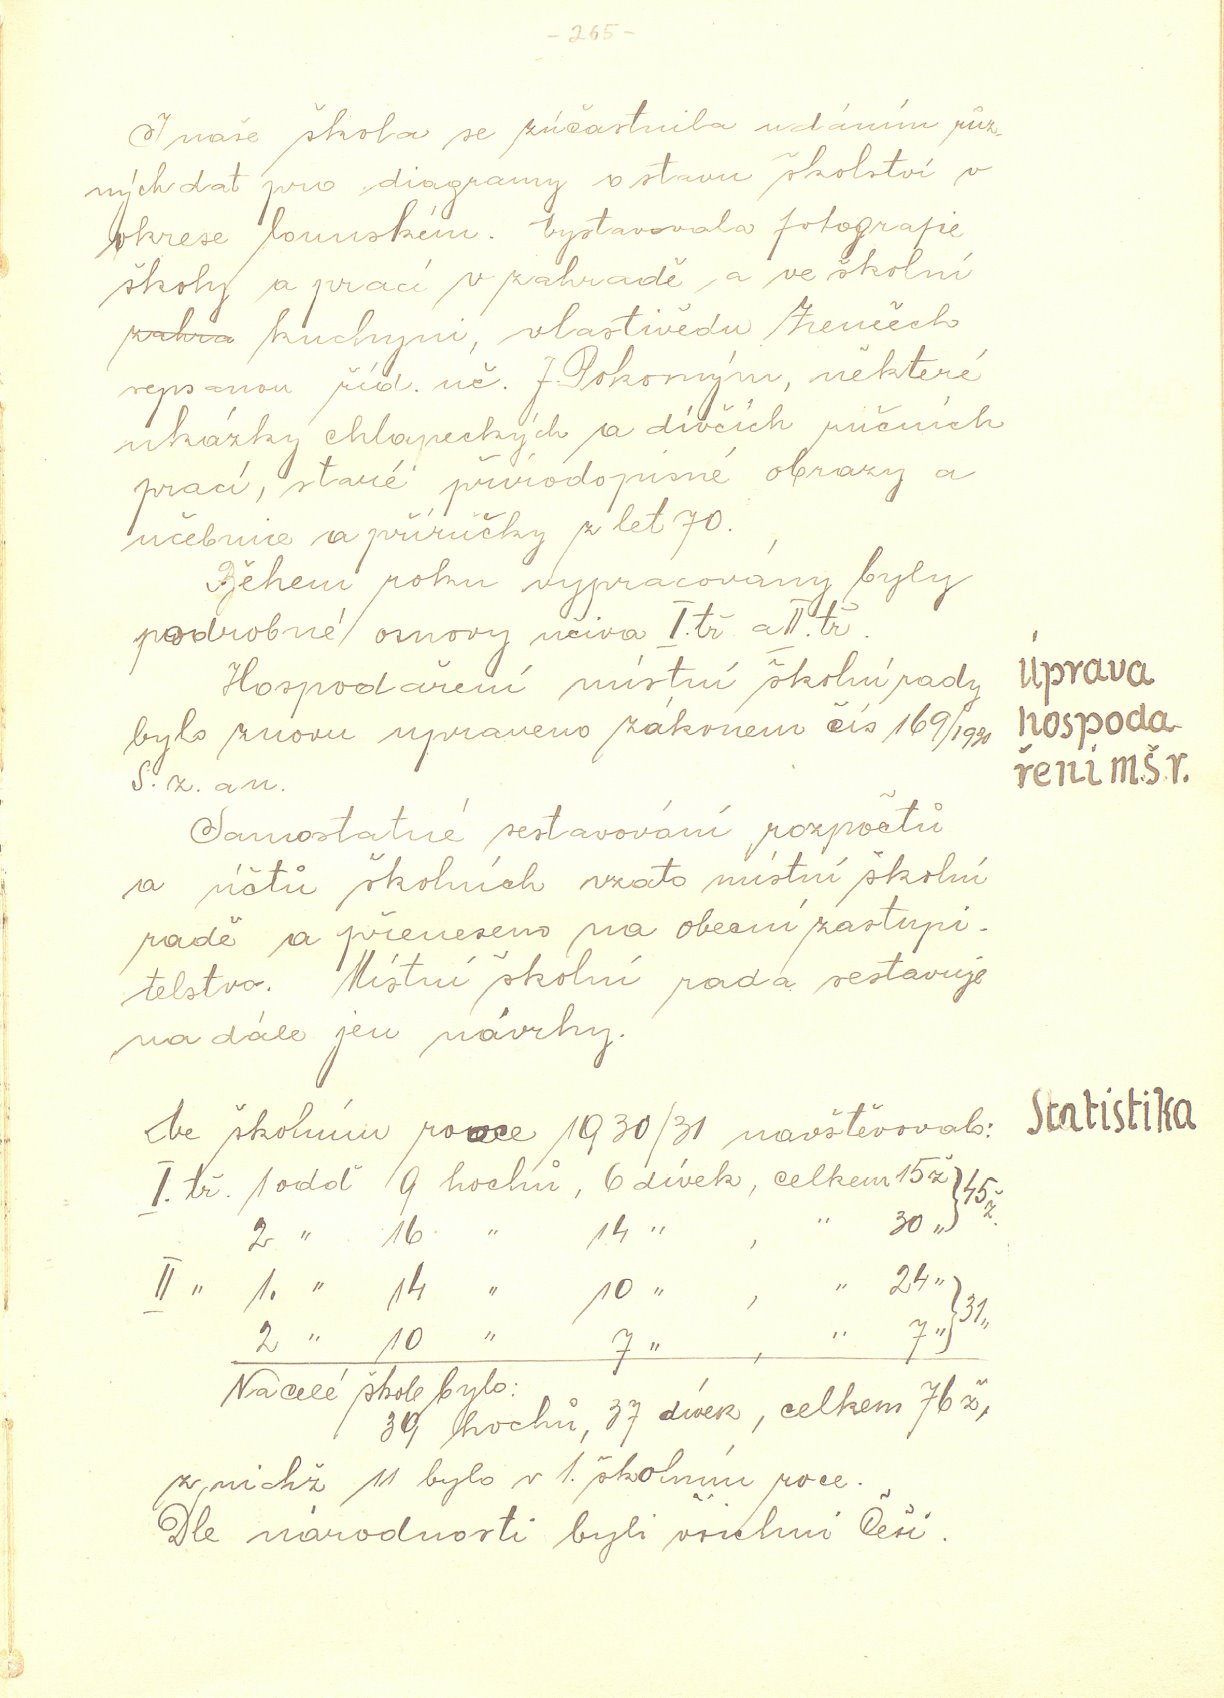 - 265 -
I naše škola se zúčastnila udáním růz-
ných dat pro diagramy o stavu školství v
okrese lounském. Vystavovala fotografie
školy a prací v zahradě a ve školní
zahra kuchyni, vlastivědu
sepsanou říd. uč. J. Pokorným, některé
ukázky chlapeckých a dívčích ručních
prací, staré přírodopisné obrazy a
učebnice a příručky z let 70.
Během roku vypracovány byly
podrobné osnovy učiva I. tř. a II. tř.
Hospodaření místní školní rady
Úprava
bylo znovu upraveno zákonem čís 169/1930
hospoda
S. z. a n.
ření m.š.r.
Samostatné sestavování rozpočtů
a účtů školních vzato místní školní
radě a přeneseno na obecní zastupi-
telstvo. Místní školní rada sestavuje
na dále jen návrhy.
Ve školním roce 1930/31 navštěvovalo:
Statistika
I. tř. 1 odd 9 hochů, 6 dívek, celkem 15 ž } 45 ž.
2 " 16 " 14 " , " 30 "
II " 1. " 14 " 10 " , " 24 " } 31 "
2 " 10 " 7 " , " 7 "
Na celé škole bylo:
39 hochů, 37 dívek, celkem 76 ž,
z nichž 11 bylo v 1. školním roce.
Dle národnosti byli všichni Češi.